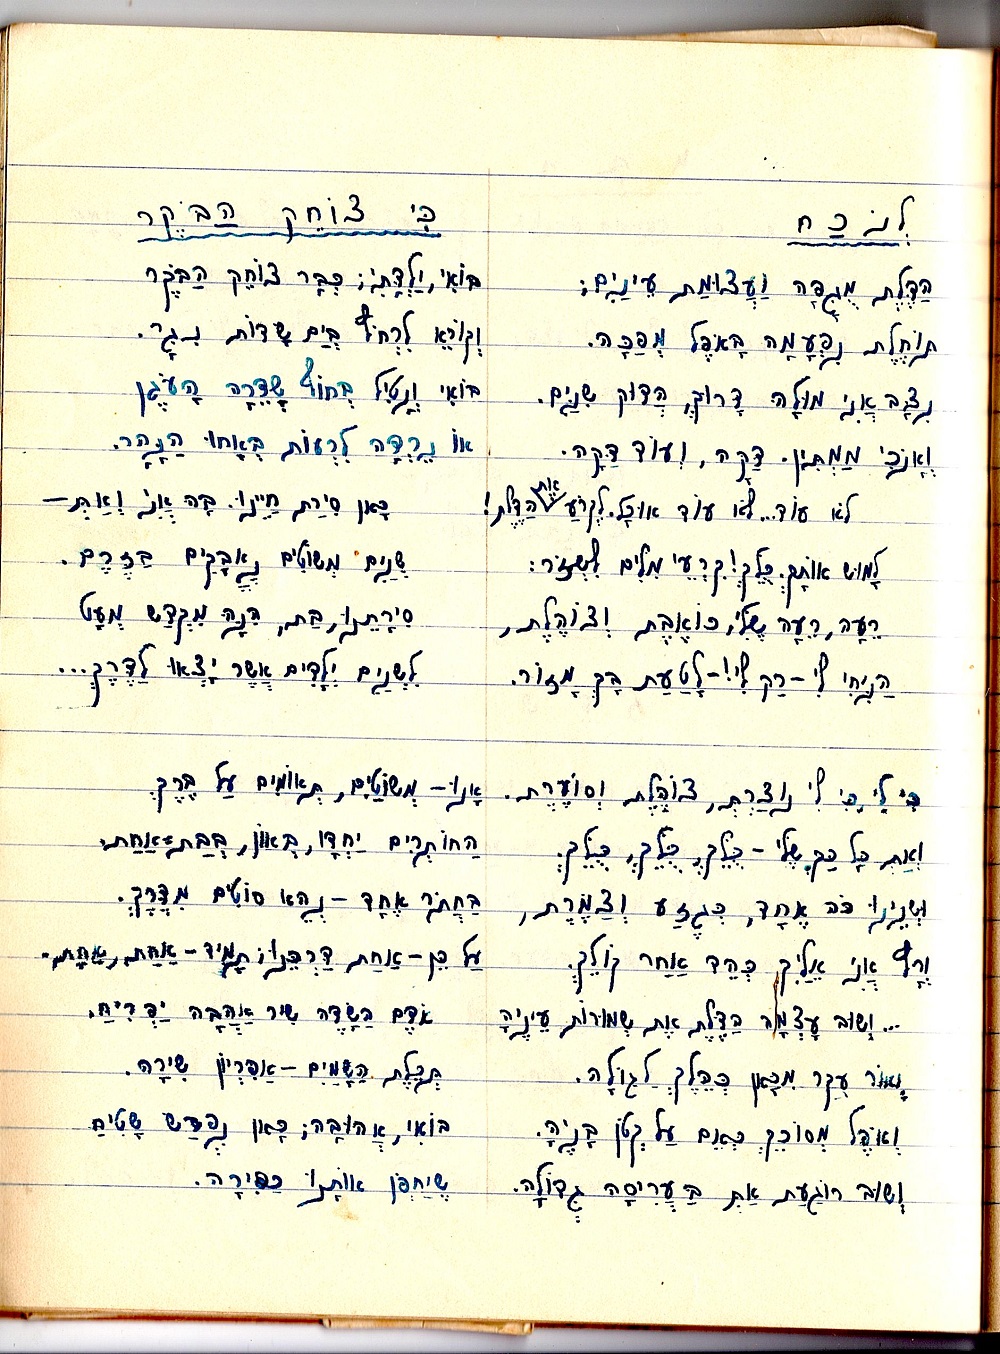 לְנֹכַח
הַדֶּלֶת מֻגָפָה וַעֲצוּמַת עֵינַיִם;
תּוֹחֶלֶת נִפְעָמָה בָּאֹפֶל מְפַכָּה.
נִצָּב אֲנִי מוּלָהּ דָּרוּךְ, הֲדוּק שִׁנַּיִם.
וְאָנֹכִי מַמְתִּין. דַּקָּה, וְעוֹד דַּקָּה.
לֹא עוֹד... לֹא עוֹד אוּכָל. לִקְרֹעַ אֶת הַדֶּלֶת!
לָמוּשׁ אוֹתָךְ, כֻּלֵּךְ! קִרְעֵי מִלִּים לִשְׁזֹר:
רֵעָה, רֵעָה שֶׁלִּי, כּוֹאֶבֶת וְצוֹהֶלֶת,
הַנִּיחִי לִי – רַק לִי! – לָטַעַת בָּךְ מָזוֹר.
כִּי לִי, כִּי לִי נוֹצַרְתְּ, צוֹהֶלֶת וְסוֹעֶרֶת.
וְאַתְּ כָּל כַּךְ שֶׁלִּי – כֻּלֵּךְ, כֻּלֵּךְ, כֻּלֵּךְ,
וּשְׁנֵינוּ פֹּה אֶחָד, כְּגֶזַע וְצַמֶּרֶת,
וְרָץ אֲנִי אֵלַיִךְ כְּהֵד אַחַר קוֹלֵךְ.
... וְשׁוּב עָצְמָה הַדֶּלֶת אֶת שְׁמוּרוֹת עֵינֶיהָ
וְאוֹר עָקַר מִכָּאן כְּהֵלֶךְ לַגּוֹלָה.
וְאֹפֶל מְסוֹכֵךְ כְּאֵם עַל קְטֹן בָּנֶיהָ.
וְשׁוּב רוֹגַעַת אַתְּ בַּעֲרִיסָה גְּדוֹלָה.
כִּי צוֹחֵק הַבֹּקֶר
בּוֹאִי, יַלְדָּתִי; כְּבָר צוֹחֵק הַבֹּקֶר
וְקוֹרֵא לִרְחֹץ בְּיַם שָׂדוֹת נִגָּר.
בּוֹאִי וְנָטִיל בְּחוֹף שְׂדֵרָה הָעֹגֶן
אוֹ נֵרְדָה לִרְעוֹת בְּאָחוּ הַנָּהָר.
כָּאן סִירַת חַיֵּינוּ. בָּהּ אֲנִי וְאַתְּ –
שְׁנַיִם מְשׁוֹטִים נֶאֱבָקִים בַּזֶּרֶם.
סִירָתֵנוּ, בַּת, הִנָּהּ מִקְדַּשׁ מְעָט
לִשְׁנַיִם יְלָדִים אֲשֶׁר יָצְאוּ לַדֶּרֶךְ...
אָנוּ – מְשׁוֹטַיִם, תְּאוֹמִים עַל בֶּרֶךְ
הַחוֹתְרִים יַחְדָּו, בְּאוֹן, בְּבַת־אַחַת.
בַּחֲתֹר אֶחָד – נְהֵא סוֹטִים מִדֶּרֶךְ.
עַל כֵּן – אַחַת דַּרְכֵּנוּ; תָּמִיד – אַחַת, אַחַת.
אֹדֶם הַשָּׂדֶה שִׁיר אַהֲבָה יַפְרִיחַ.
תְּכֵלֶת הַשָּׁמַיִם – אַפִּרְיוֹן שִׁירָה.
בּוֹאִי, אֲהוּבָה; כָּאן נִפְרֹשׂ שָׁטִיחַ
שֶׁיַּחְפֹּן אוֹתָנוּ כַּסִּירָה.